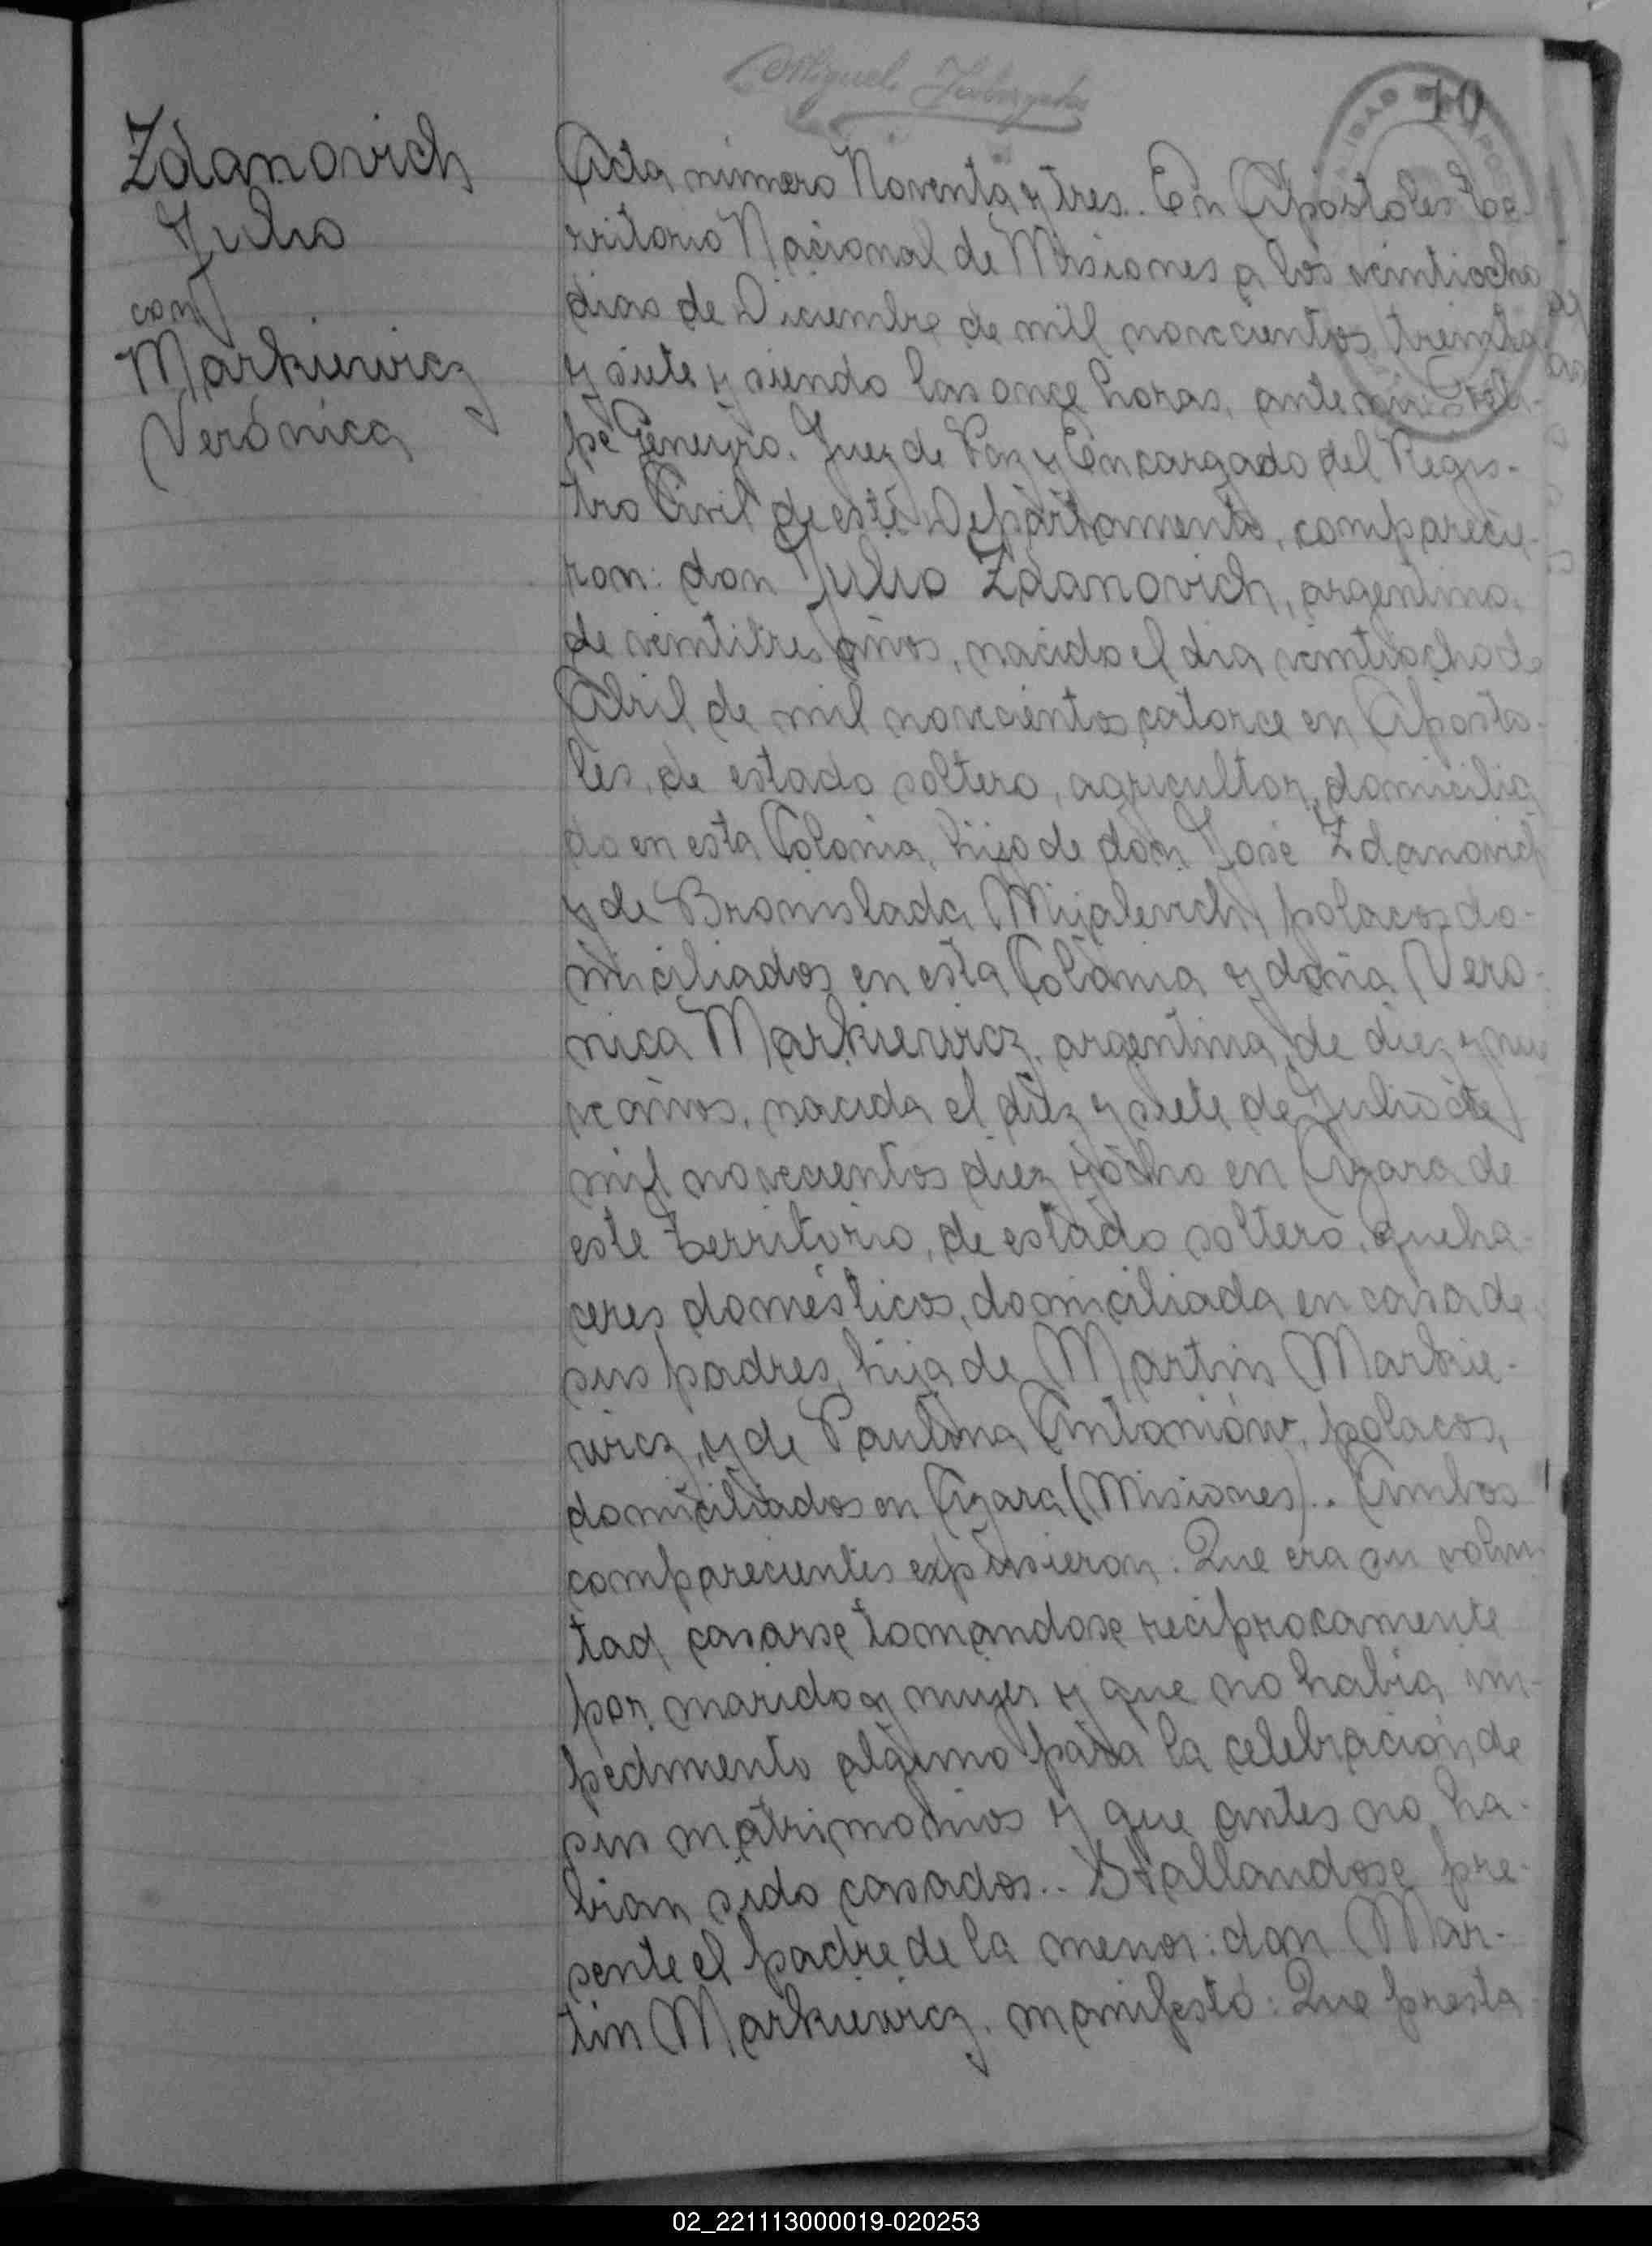 10
Zdanovich
Julio
con
Markiewicz
Verónica
Miguel
Acta número Noventa y tres.. En Apóstoles te-
rritorio Nacional de Misiones a los veintiocho
dias de Diciembre de mil novecientos treinta
y siete y siendo las once horas, ante mi Feli-
pe Geneyro. Juez de Paz y Encargado del Regis-
tro Civil de este Departamento, comparecie-
ron: don Julio Zdanovich, argentino,
de veintitres años, nacido el dia veintiocho de
Abril de mil novecientos catorce en Aposto-
les, de estado soltero, agricultor, domicilia
do en esta Colonia, hijo de don José Zdanovich
y de Bronislada Mijalevich, polacos do-
miciliados en esta Colonia y doña Vero-
nica Markiewicz, argentina, de diez y nue
ve años, nacida el diez y siete de Julio de
mil novecientos diez y ocho en Azara de
este territorio, de estado soltero, queha-
ceres domésticos, domiciliada en casa de
sus padres, hija de Martin Markie-
wicz, y de Paulina Antoniów, polacos,
domiciliados en Azara (Misiones).. Ambos
comparecientes expusieron: Que era su volun
tad casarse tomandose reciprocamente
por marido y mujer y que no habia im-
pedimento alguno para la celebración de
sus matrimonios y que antes no ha-
bian sido casados.. Hallandose pre-
sente el padre de la menor: don Mar-
tin Markiewicz, manifestó: Que presta
02_221113000019-020253